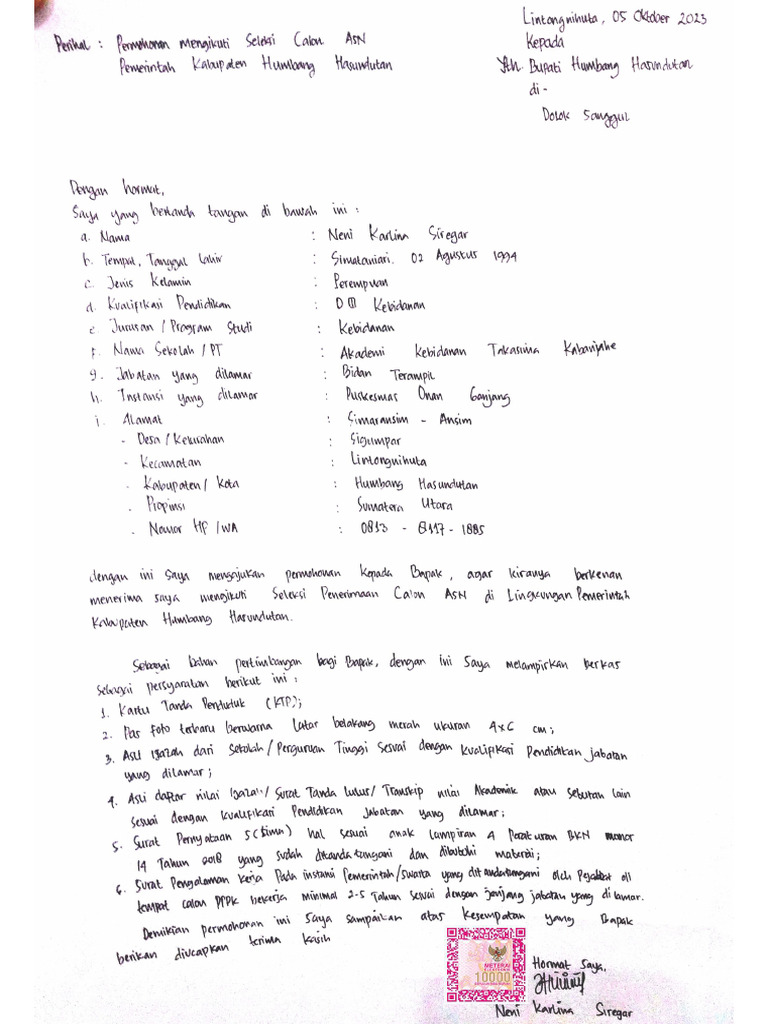 Lintongnihuta, 05 Oktober 2023
Perihal : Permohonan mengikuti Seleksi Calon ASN
Pemerintah Kabupaten Humbang Hasundutan
Kepada
Yth. Bupati Humbang Hasundutan
di -
Dolok Sanggul
Dengan hormat,
Saya yang bertanda tangan di bawah ini :
a. Nama : Neni Karlina Siregar
b. Tempat, Tanggal Lahir : Simataniari. 02 Agustus 1994
c. Jenis Kelamin : Perempuan
d. Kualifikasi Pendidikan : D III Kebidanan
e. Jurusan / Program Studi : Kebidanan
f. Nama Sekolah / PT : Akademi Kebidanan Takasima Kabanjahe
g. Jabatan yang dilamar : Bidan Terampil
h. Instansi yang dilamar : Puskesmas Onan Ganjang
i. Alamat : Simaransim - Ansim
- Desa / Kelurahan : Sigumpar
- Kecamatan : Lintongnihuta
- Kabupaten / Kota : Humbang Hasundutan
- Propinsi : Sumatera Utara
- Nomor HP / WA : 0813 - 6117 - 1885
dengan ini saya mengajukan permohonan kepada Bapak, agar kiranya berkenan
menerima saya mengikuti Seleksi Penerimaan Calon ASN di Lingkungan Pemerintah
Kabupaten Humbang Hasundutan.
Sebagai bahan pertimbangan bagi Bapak, dengan ini Saya melampirkan berkas
sebagai persyaratan berikut ini :
1. Kartu Tanda Penduduk (KTP);
2. Pas foto terbaru berwarna latar belakang merah ukuran 4x6 cm;
3. Asli Ijazah dari Sekolah / Perguruan Tinggi sesuai dengan kualifikasi Pendidikan jabatan
yang dilamar;
4. Asli daftar nilai Ijazah / Surat Tanda Lulus / Transkip nilai Akademik atau sebutan lain
sesuai dengan kualifikasi Pendidikan Jabatan yang dilamar;
5. Surat Pernyataan 5 (lima) hal sesuai anak lampiran 4 Peraturan BKN nomor
14 Tahun 2018 yang sudah ditanda tangani dan dibubuhi materai;
6. Surat Pengalaman kerja Pada instansi Pemerintah/swasta yang ditandatangani oleh Pejabat dll
tempat calon PPPK bekerja minimal 2-5 Tahun sesuai dengan jenjang jabatan yang di lamar.
Demikian permohonan ini Saya sampaikan atas kesempatan yang Bapak
berikan diucapkan terima kasih
METERAI
10000
Hormat Saya,
Neni Karlina Siregar